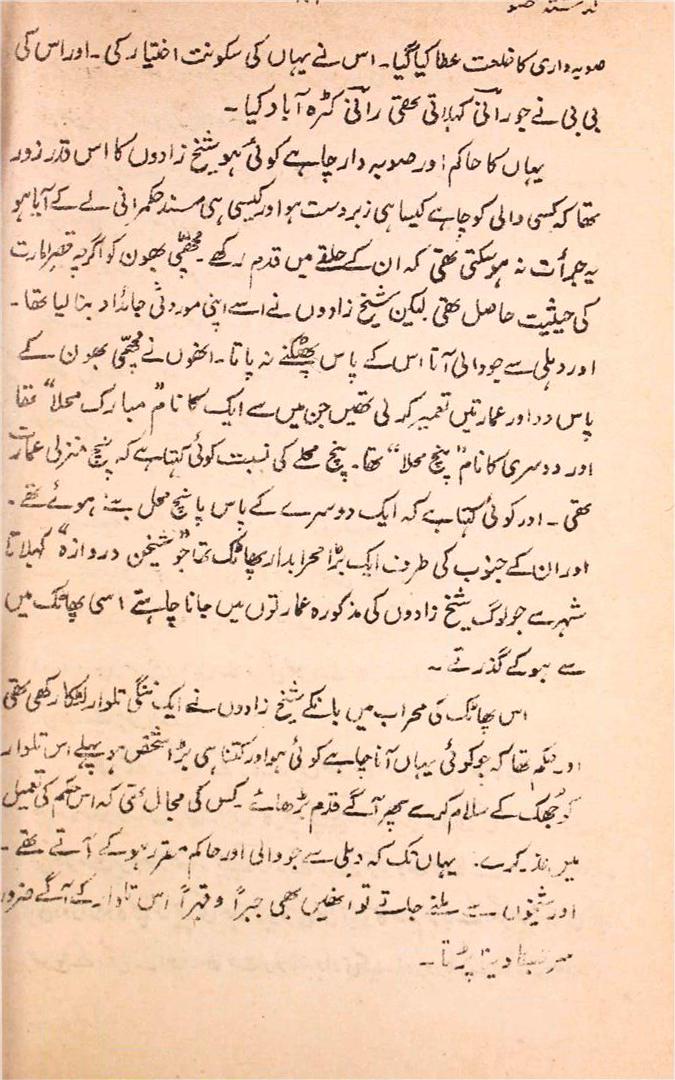 صوبہ داری کا خلعت عطا کیا گیا۔ اس نے یہاں کی سکونت اختیار کی۔ اور اس کی
بی بی نے جو رانی کہلاتی تھی رانی کٹرہ آباد کیا۔
یہاں کا حاکم اور صوبہ دار چاہے کوئی ہو شیخ زادوں کا اس قدر زور
تھا کہ کسی والی کو چاہے کیسا ہی زبردست ہو اور کیسی ہی مسند حکمرانی لے کے آیا ہو
یہ جرأت نہ ہو سکتی تھی کہ ان کے حلقے میں قدم رکھے۔ مچھی بھون کو اگرچہ قصر امارت
کی حیثیت حاصل تھی لیکن شیخ زادوں نے اسے اپنی موروثی جائداد بنا لیا تھا۔
اور دہلی سے جو والی آتا اس کے پاس پھٹکنے نہ پاتا۔ انھوں نے مچھی بھون کے
پاس دو اور عمارتیں تعمیر کر لی تھیں جن میں سے ایک کا نام "مبارک محلا" تھا
اور دوسری کا نام "پنچ محلا" تھا۔ پنچ محلے کی نسبت کوئی کہتا ہے کہ پنچ منزلی عمارت
تھی۔ اور کوئی کہتا ہے کہ ایک دوسرے کے پاس پانچ محل بنے ہوئے تھے۔
اور ان کے جنوب کی طرف ایک بڑا محرابدار پھاٹک تھا جو "شیخن دروازہ" کہلاتا
شہر سے جو لوگ شیخ زادوں کی مذکورہ عمارتوں میں جانا چاہتے اسی پھاٹک میں
سے ہو کے گذرتے۔
اس پھاٹک کی محراب میں بانکے شیخ زادوں نے ایک ننگی تلوار لٹکا رکھی تھی
اور حکم تھا کہ جو کوئی یہاں آنا چاہے کوئی ہو اور کتنا ہی بڑا شخص ہو پہلے اس تلوار
کو جھک کے سلام کرے پھر آگے قدم بڑھائے۔ کس کی مجال تھی کہ اس حکم کی تعمیل
میں عذر کرے۔ یہاں تک کہ دہلی سے جو والی اور حاکم مقرر ہو کے آتے تھے۔
اور شیخوں سے ملنے جاتے تو انھیں بھی جبراً و قہراً اس تلوار کے آگے ضرور
سر جھکا دینا پڑتا۔